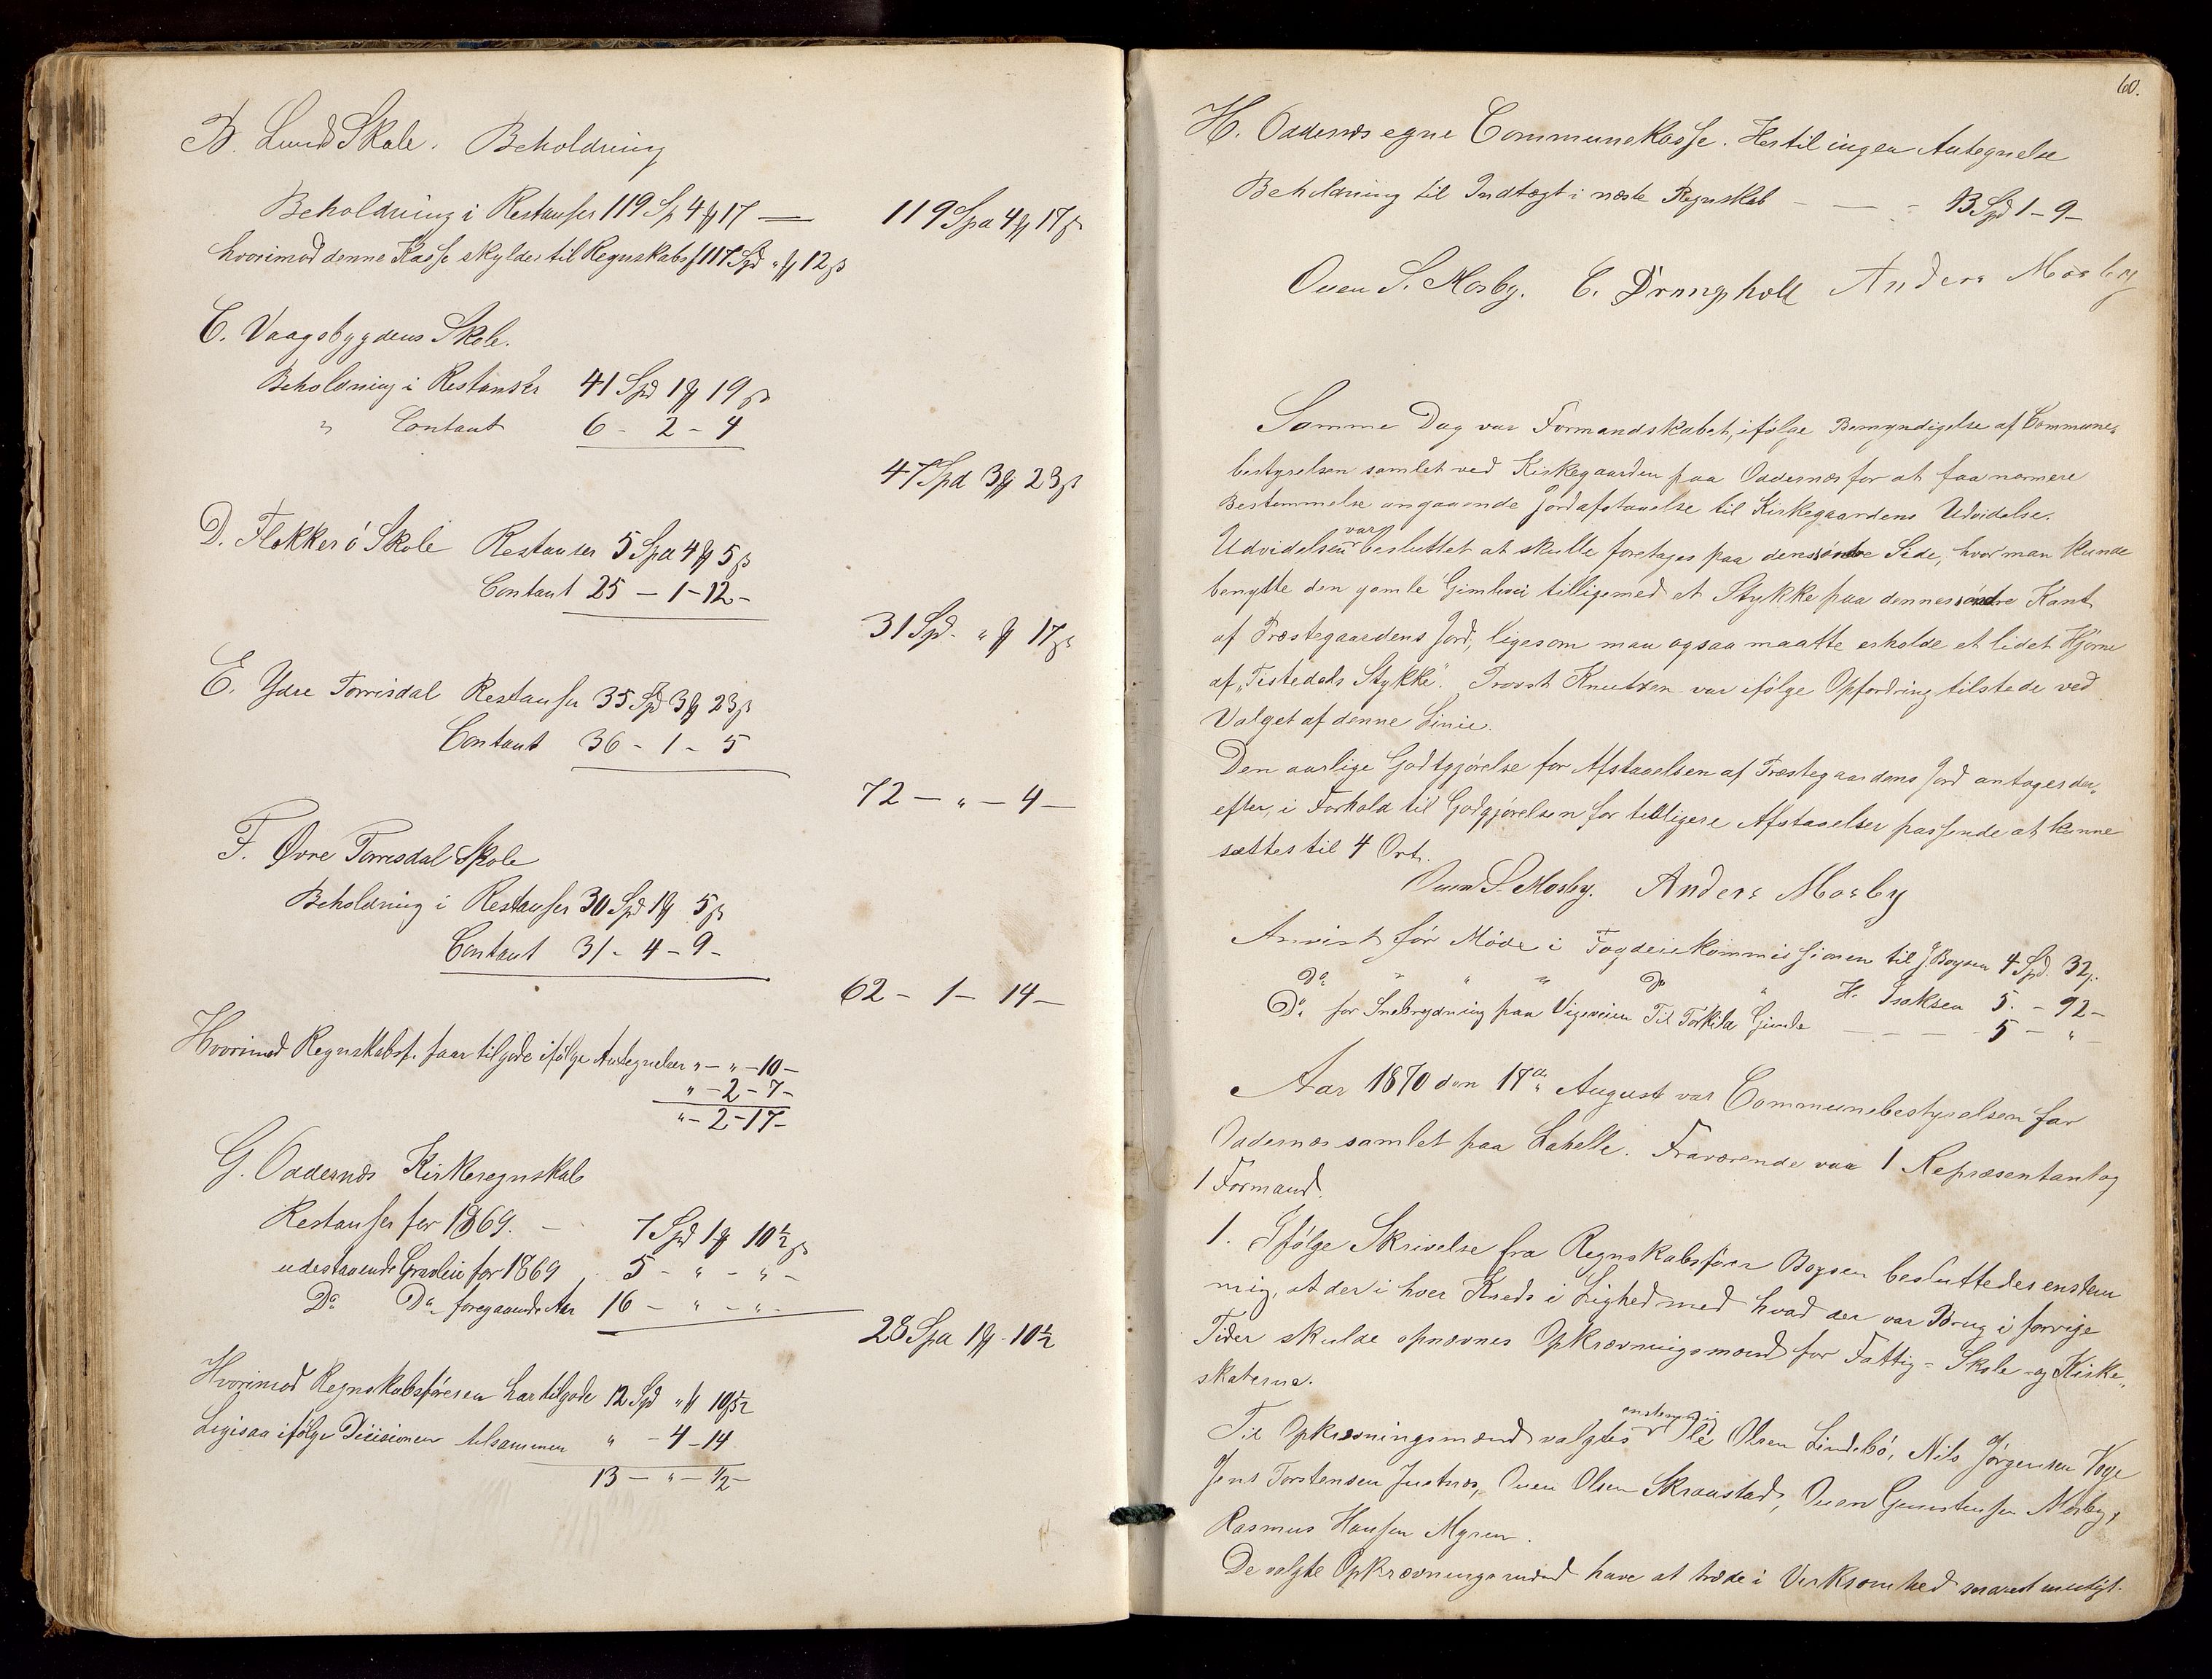 B. Lunds Skole. Beholdning
Beholdning i Restanser 119 Sp 4 ß 17 — 119 Spd 4 ß 17 ß
hvorimod denne Kasse skylder til Regnskabsf 117 Spd " ß 12 ß
C. Vaagsbygdens Skole.
Beholdning i Restanser 41 Spd 1 ß 19 ß
" Contant 6 - 2 - 4
47 Spd 3 ß 23 ß
D. Flekkerö Skole Restanser 5 Spd 4 ß 5 ß
Contant 25 - 1 - 12 -
31 Spd. " ß 17 ß
E. Ydre Torrisdal Restanser 35 Spd 3 ß 23 ß
Contant 36 - 1 - 5
72 - " - 4 -
F. Øvre Torrisdal Skole
Beholdning i Restanser 30 Spd 1 ß 5 ß
Contant 31 - 4 - 9 -
62 - 1 - 14 -
Hvorimod Regnskabsf. faar tilgode ifølge Antegnelser " - " - 10 -
" - 2 - 7 -
" - 2 - 17 -
G. Oddernæs Kirkeregnskab
Restanser for 1869. - 7 Spd 1 ß 10½ ß
udestaaende Gravleie for 1869 5 - " - " -
Do Do foregaaende Aar 16 - " - " -
28 Spd 1 ß - 10½
Hvorimod Regnskabsføreren har tilgode 12 Spd " ß 10½
Ligesaa ifølge Decisioner tilsammen " - 4 - 14
13 - " - ½ -
60.
H. Oddernæs egne Communekasse. Hertil ingen Antegnelse
Beholdning til Indtægt i næste Regnskab - — - 13 Spd 1 - 9 -
Ouen S. Mosby. C. Drangholt Anders Mosby
Samme Dag var Formandskabet, ifølge Bemyndigelse af Commune-
bestyrelsen samlet ved Kirkegaarden paa Oddernæs for at faa nærmere
Bestemmelse angaaende Jordafstaaelse til Kirkegaardens Udvidelse.
Udvidelsen var besluttet at skulle foretages paa den søndre Side, hvor man kunde
benytte den gamle Gimlevei tilligemed et Stykke paa dennes søndre Kant
af Præstegaardens Jord, ligesom man ogsaa maatte erholde et lidet Hjørne
af „Tistedals Stykke". Provst Knutzen var ifølge Opfordring tilstede ved
Valget af denne Linie.
Den aarlige Godtgjørelse for Afstaaelsen af Præstegaardens Jord antoges der-
efter, i Forhold til Godgjørelsen for tidligere Afstaaelser passende at kunne
sættes til 4 Ort.
Ouen S. Mosby. Anders Mosby
Anvist før Møde i Fogderikommissionen til J. Boysen 4 Spd. 32 ß.
Do " " " Do " H. Isaksen 5. - 92 -
Do for Snebrydning paa Vigeveien Til Torkild Gimle — - — - 5 - " -
Aar 1870 den 17de August var Communebestyrelsen for
Oddernæs samlet paa Lahelle. Fraværende var 1 Repræsentant og
1 Formand.
1. Ifølge Skrivelse fra Regnskabsfører Boysen besluttedes enstem
mig, at der i hver Kreds i Lighed med hvad der var Brug i forrige
Tider skulde opnævnes Opkrævningsmænd for Fattig- Skole- og Kirke-
skaterne.
Til Opkrævningsmænd valgtes enstemmig Ole Olsen Lindebö, Nils Jørgensen Voge
Jens Torstensen Justnæs, Ouen Olsen Skraastad, Ouen Gunstensen Mosby,
Rasmus Hansen Myren.
De valgte Opkrævningsmænd have at træde i Virksomhed snarest muligt.